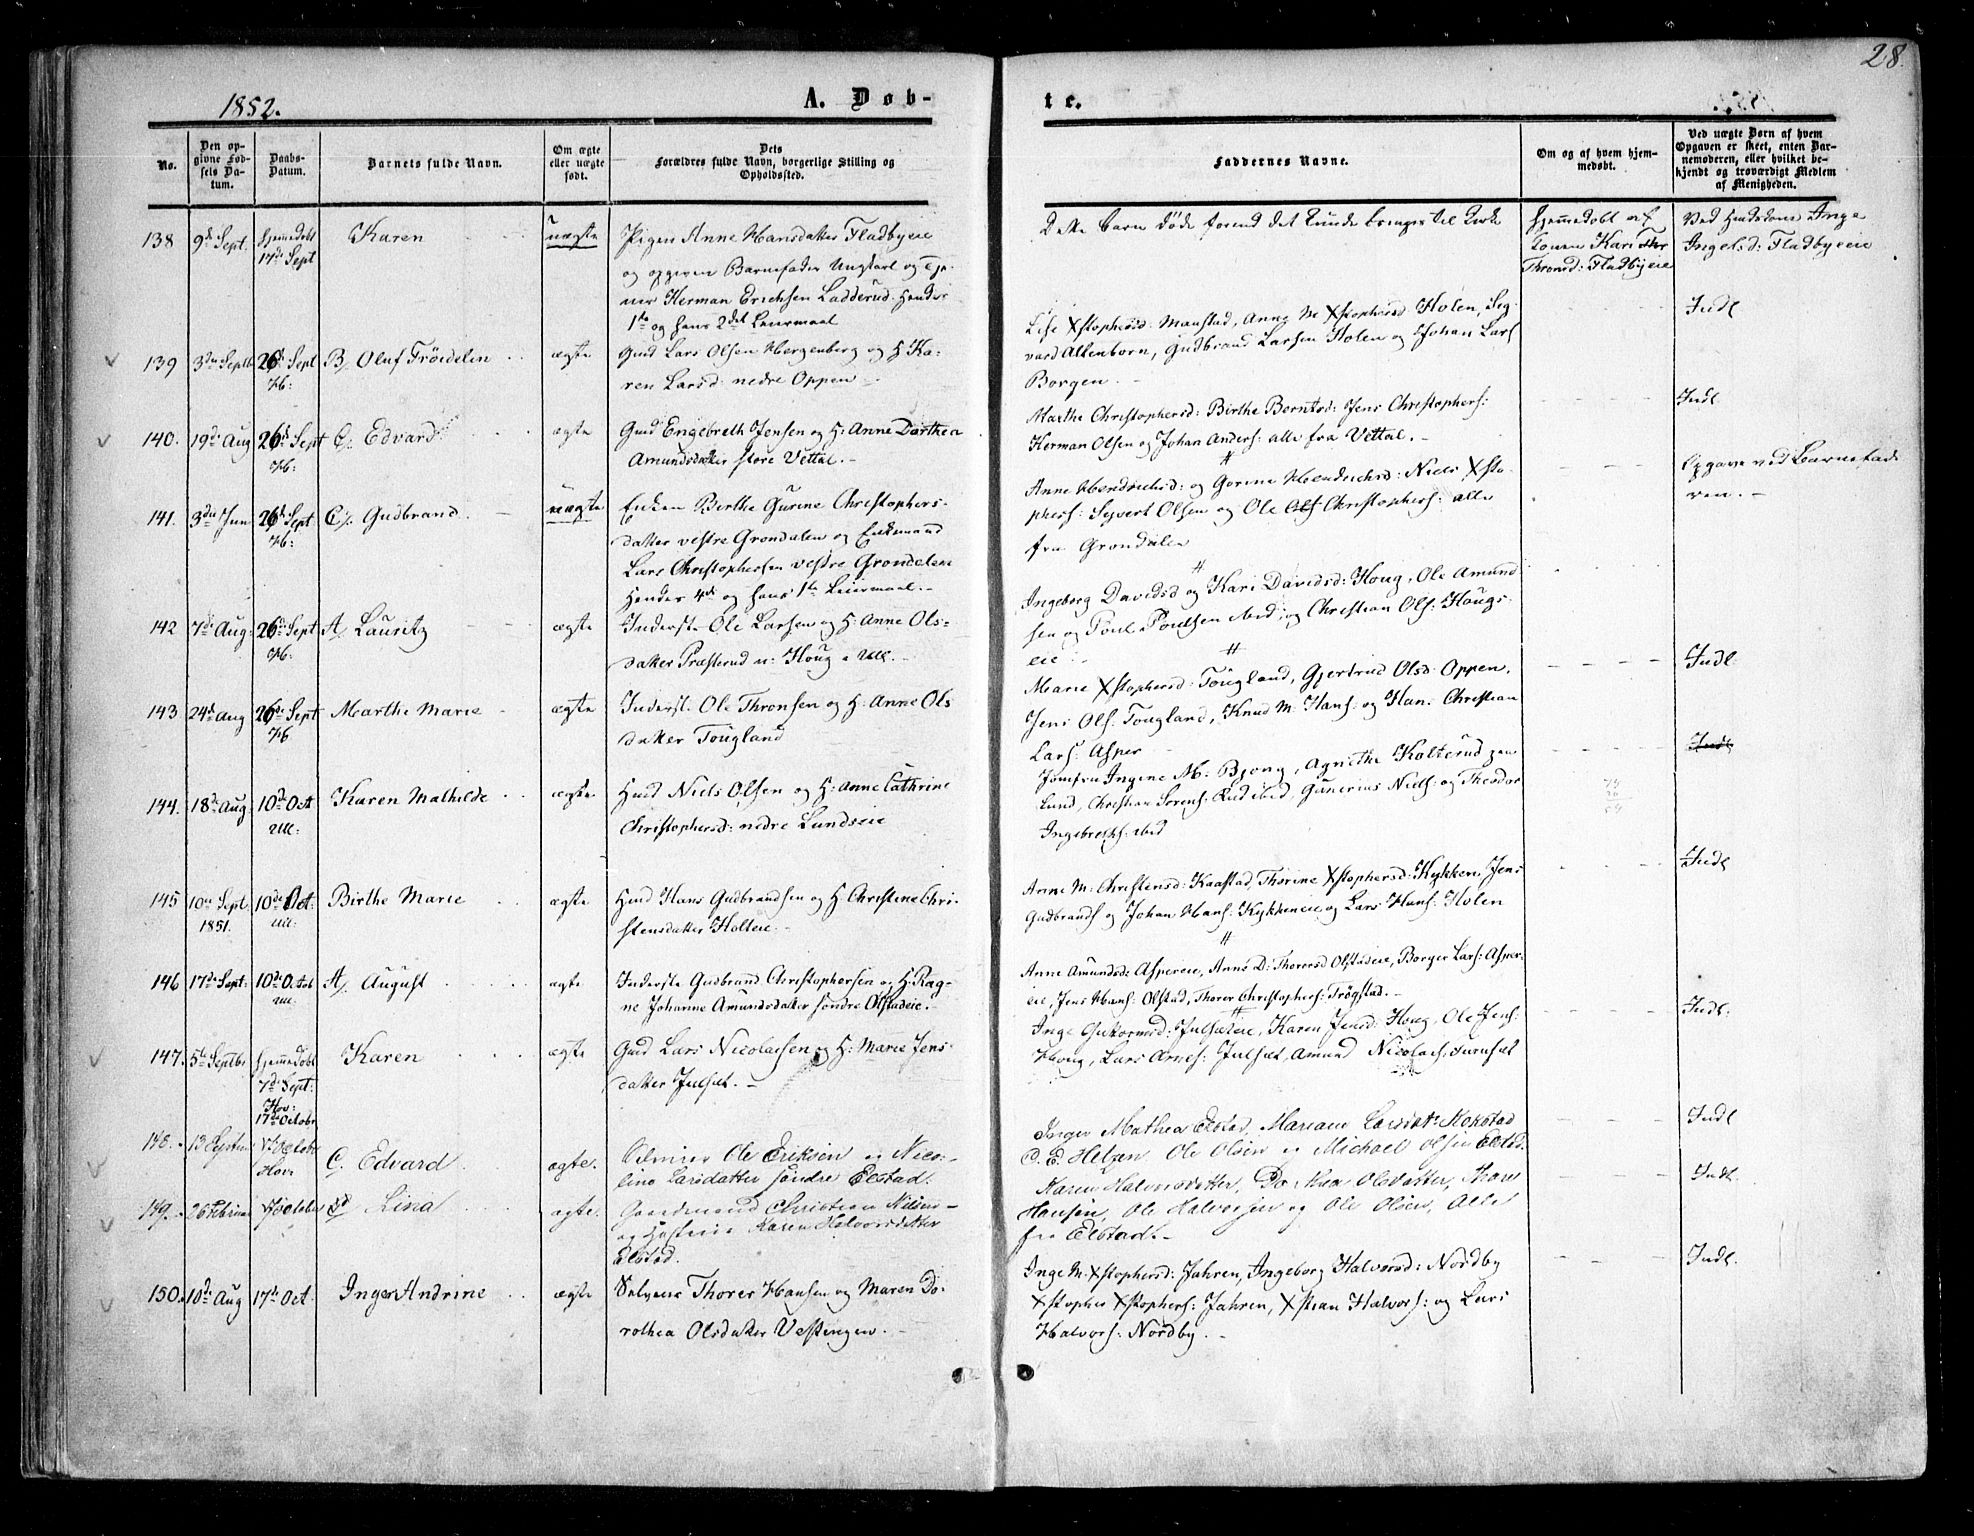 28.
1852.
A. Døb-
te.
No.
Den op-
givne Fød-
sels Da-
tum.
Daabs-
Datum.
Barnets fulde Navn.
Om ægte
eller uægte
født.
Dets
Forældres fulde Navn, borgerlige Stilling og
Opholdssted.
Faddernes Navne.
Om og af hvem hjem-
medøbt.
Ved uægte Børn af hvem
Opgaven er skeet, enten Bar-
nemoderen, eller hvilket be-
kjendt og troværdigt Medlem
af Menigheden.
138 9de Sept. hjemmedøbt 17de Sept Karen uægte
Pigen Anne Hansdatter Fladbyeie
og opgiven Barnefader Ungkarl og
Herman Erichsen Ladderud. Hendes
1ste og hans 2det Leiermaal
Dette Barn døde forend det kunde bringes til Kirke
hjemmedøbt af
Konen Kari
Thronsd: Fladbyeie
Ved Inge
Ingelsd: Fladbyeie
139 3die Septb 26de Sept B/. Oluf Tröidelen ægte
Gmd Lars Olsen Hergenberg og H Ka-
ren Larsd: nedre Oppen
Lise Xstophersd: Maustad, Anne M Xstophersd Holen, Seg-
vard Altenborn, Gudbrand Larsen Holen og Johan Lars
Borgen.
Indl
140. 19de Aug 26de Sept C/. Edvard ægte
Gmd Engebreth Jensen og H: Anne Dorthea
Amundsdatter store Vettal.
Marthe Christophersd: Birthe Berntsd: Jens Christophers:
Herman Olsen og Johan Anders: alle fra Vettal.
Indl
141. 3die Jun 26de Sept C/. Gudbrand uægte
Enken Birthe Gurine Christophers-
datter vestre Grøndalen og Enkemand
Lars Christophersen vestre Grøndalen
Hendes 4de og hans 1ste Leiermaal.
Anne Hendrichsd: og Gorine Hendrichsd: Niels Xsto-
phers: Sejvert Olsen og Ole Christophers: alle
fra Grøndalen
Opgave ved Barnefad-
ren.
142 7de Aug: 26de Sept A/. Lauritz ægte
Inderst Ole Larsen og H: Anne Ols-
datter Præsterud u: Houg i Ull.
Ingeborg Davidsd og Kari Davidsd: Houg, Ole Amund-
sen og Poul Poulsen ibid; og Christian Ols: Hougs-
eie
143 24de Aug 26de Sept Marthe Marie ægte
Inderst Ole Thronsen og H: Anne Ols
datter Tougland
Marie Xstophersd: Tougland, Gjertrud Olsd: Oppen,
Jens Ols: Tougland, Knud M: Hans: og Han: Christian
Lars: Asper
Indl.
144. 18de Aug: 10de Oct Ull: Karen Mathilde ægte
Hmd Niels Olsen og H: Anne Cathrine
Christophersd: nedre Lundseie
Jomfru Ingene M: Bjong, Agnethe Kolterud
Lund, Christian Sørens: Rud ibid, Gunerius Niels: og Theodor
Ingebreths: ibid
Indl
145 10de Sept 1851. 10de Oct. Ull: Birthe Marie ægte
Hmd Hans Gudbrandsen og H: Christine Chri-
stensdatter Holteie.
Anne M: Christensd: Kaastad, Thorine Xstophersd: Kykken, Jens
Gudbrands og Johan Hans: Kykkeneie og Lars Hans: Holen
Indl
146 17de Sept: 10de Octob Ull: A/. August ægte
Inderste Gudbrand Christophersen og H: Rag-
ne Johanne Amundsdatter søndre Olstadeie.
Anne Amundsd: Aspereie, Anne D: Thorersd Olstadeie, Borger Lars: Asper-
eie, Jens Hans: Olstad, Thorer Christophers: Trøgstad.
147. 5te Septbr hjemmedøbt 7de Sept: Hov: 17de Octobr Karen ægte
Gmd Lars Nicolaisen og H: Marie Jens-
datter Julsæt.
Inge Guttormsd: Julsæteie, Karen Jensd: Houg, Ole Jens:
Houg, Lars Arnes: Julsæt, Amund Nicolais: Furuset
Indl:
148. 13 Septem Octobr Hov: C. Edvard ægte.
Selveier Ole Eriksen og Nico-
line Larsdatter søndre Elstad.
Inger Mathea Elstad, Mariane Larsdatr Kokstad
Ole Olsen og Michael Olsen Elstad.
Indl
149. 26 Februar Octobr Lina ægte.
Gaardmand Christian Nilsen
og Hustrue Karen Halvorsdatter
Elstad.
Karen Halvorsdatter, Dorthea Olsdatter, Thore
Hansen, Ole Halvorsen og Ole Olsen, Alle
fra Elstad.
Indl.
150. 10de Aug 17de Oct. Inger Andrine ægte
Selveier Thorer Hansen og Maren Do-
rothea Olsdatter Vestengen.
Inge M. Xstophersd: Jahren, Ingeborg Halvorsd: Nordby
Xstopher Xstophers: Jahren, Xstian Halvors: og Lars
Halvors: Nordby.
Indl.